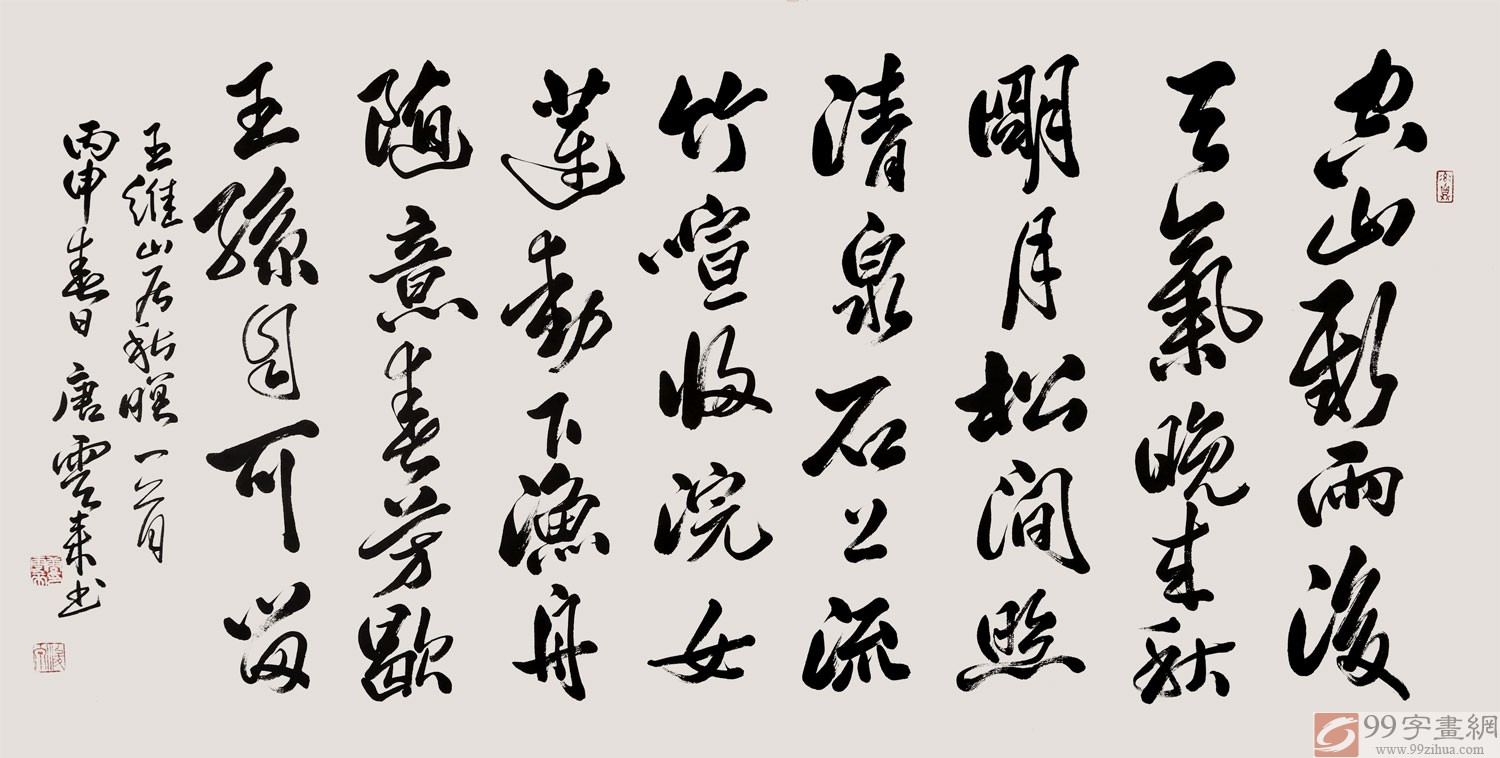 空山新雨後
天氣晚来秋
明月松澗照
清泉石上流
竹喧收浣女
蓮動下漁舟
随意春芳歇
王孫自可留
王維山居秋暝一首
丙申春日 唐雲来书
99字畫網
www.99zihua.com